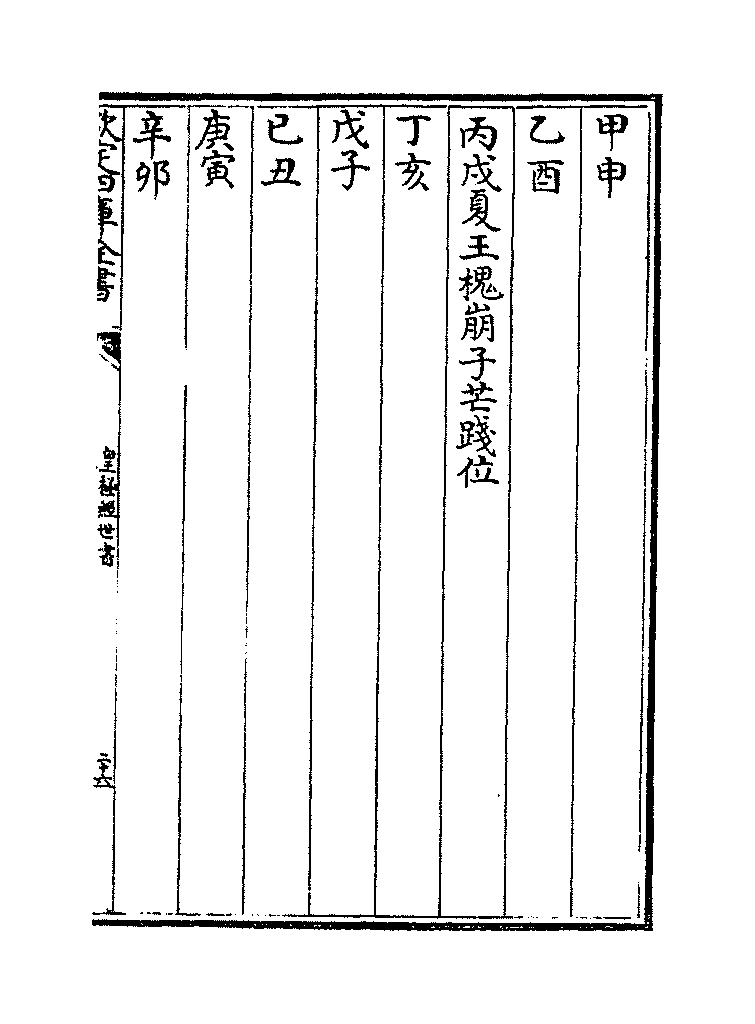 甲申
乙酉
丙戌夏王槐崩子芒踐位
丁亥
戊子
已丑
庚寅
辛卯
欽定四庫全書
皇極經世書
二十六